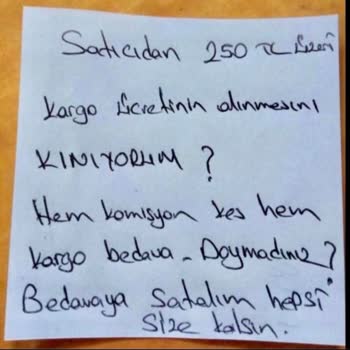 Satıcıdan 250 TL üzeri
kargo ücretinin alınmesını
KINIYORUM ?
Hem komisyon kes hem
kargo bedava - Doymadınız ?
Bedavaya Satalım hepsi
size kalsın.